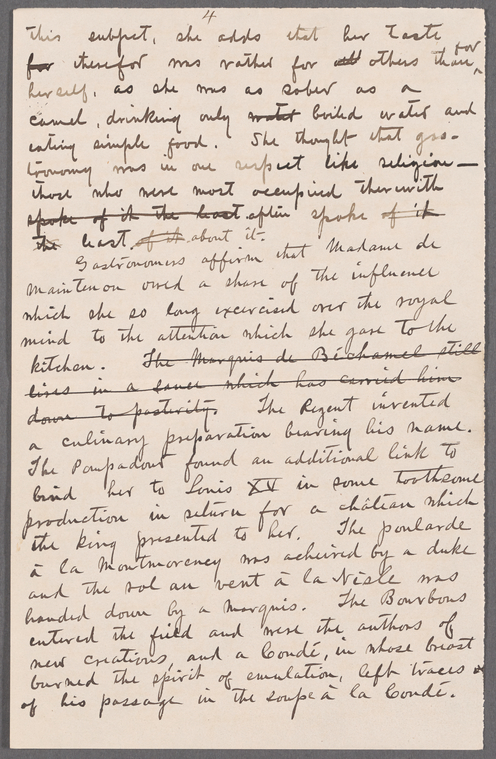 4
this subject, she adds that her taste
for therefor was rather for all others than for
herself, as she was as sober as a
camel, drinking only water boiled water and
eating simple food. She thought that gas-
tronomy was in one respect like religion—
those who were most occupied therewith
spoke of it the least often spoke of it
the least of it about it.
Gastronomers affirm that Madame de
Maintenon owed a share of the influence
which she so long exercised over the royal
mind to the attention which she gave to the
kitchen. The Marquis de Béchamel still
lives in a sauce which has carried him
down to posterity. The Regent invented
a culinary preparation bearing his name.
The Pompadour found an additional link to
bind her to Louis XV in some toothsome
production in return for a château which
the king presented to her. The poularde
à la Montmorency was acheived by a duke
and the vol au vent à la Nesle was
handed down by a marquis. The Bourbons
entered the field and were the authors of
new creations, and a Condé, in whose breast
burned the spirit of emulation, left traces
of his passage in the soupe à la Condé.